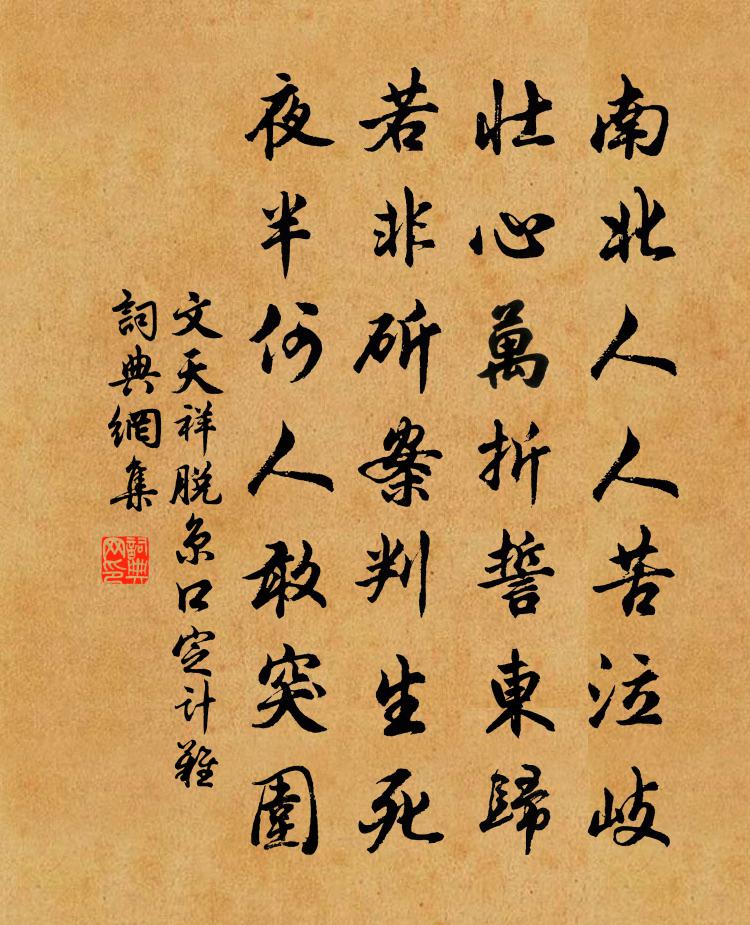 南北人人苦泣岐
壯心萬折誓東歸
若非斫案判生死
夜半何人敢突圍
文天祥脱京口定計難
詞典網集
詞典
网印